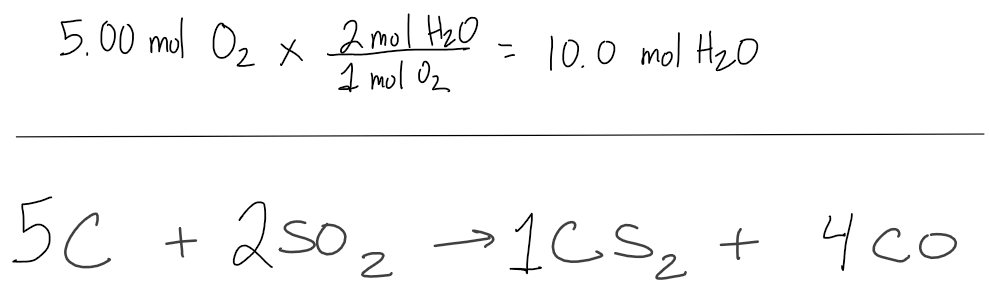 5.00 mol O₂ × 2 mol H₂O / 1 mol O₂ = 10.0 mol H₂O
5C + 2SO₂ → 1CS₂ + 4CO